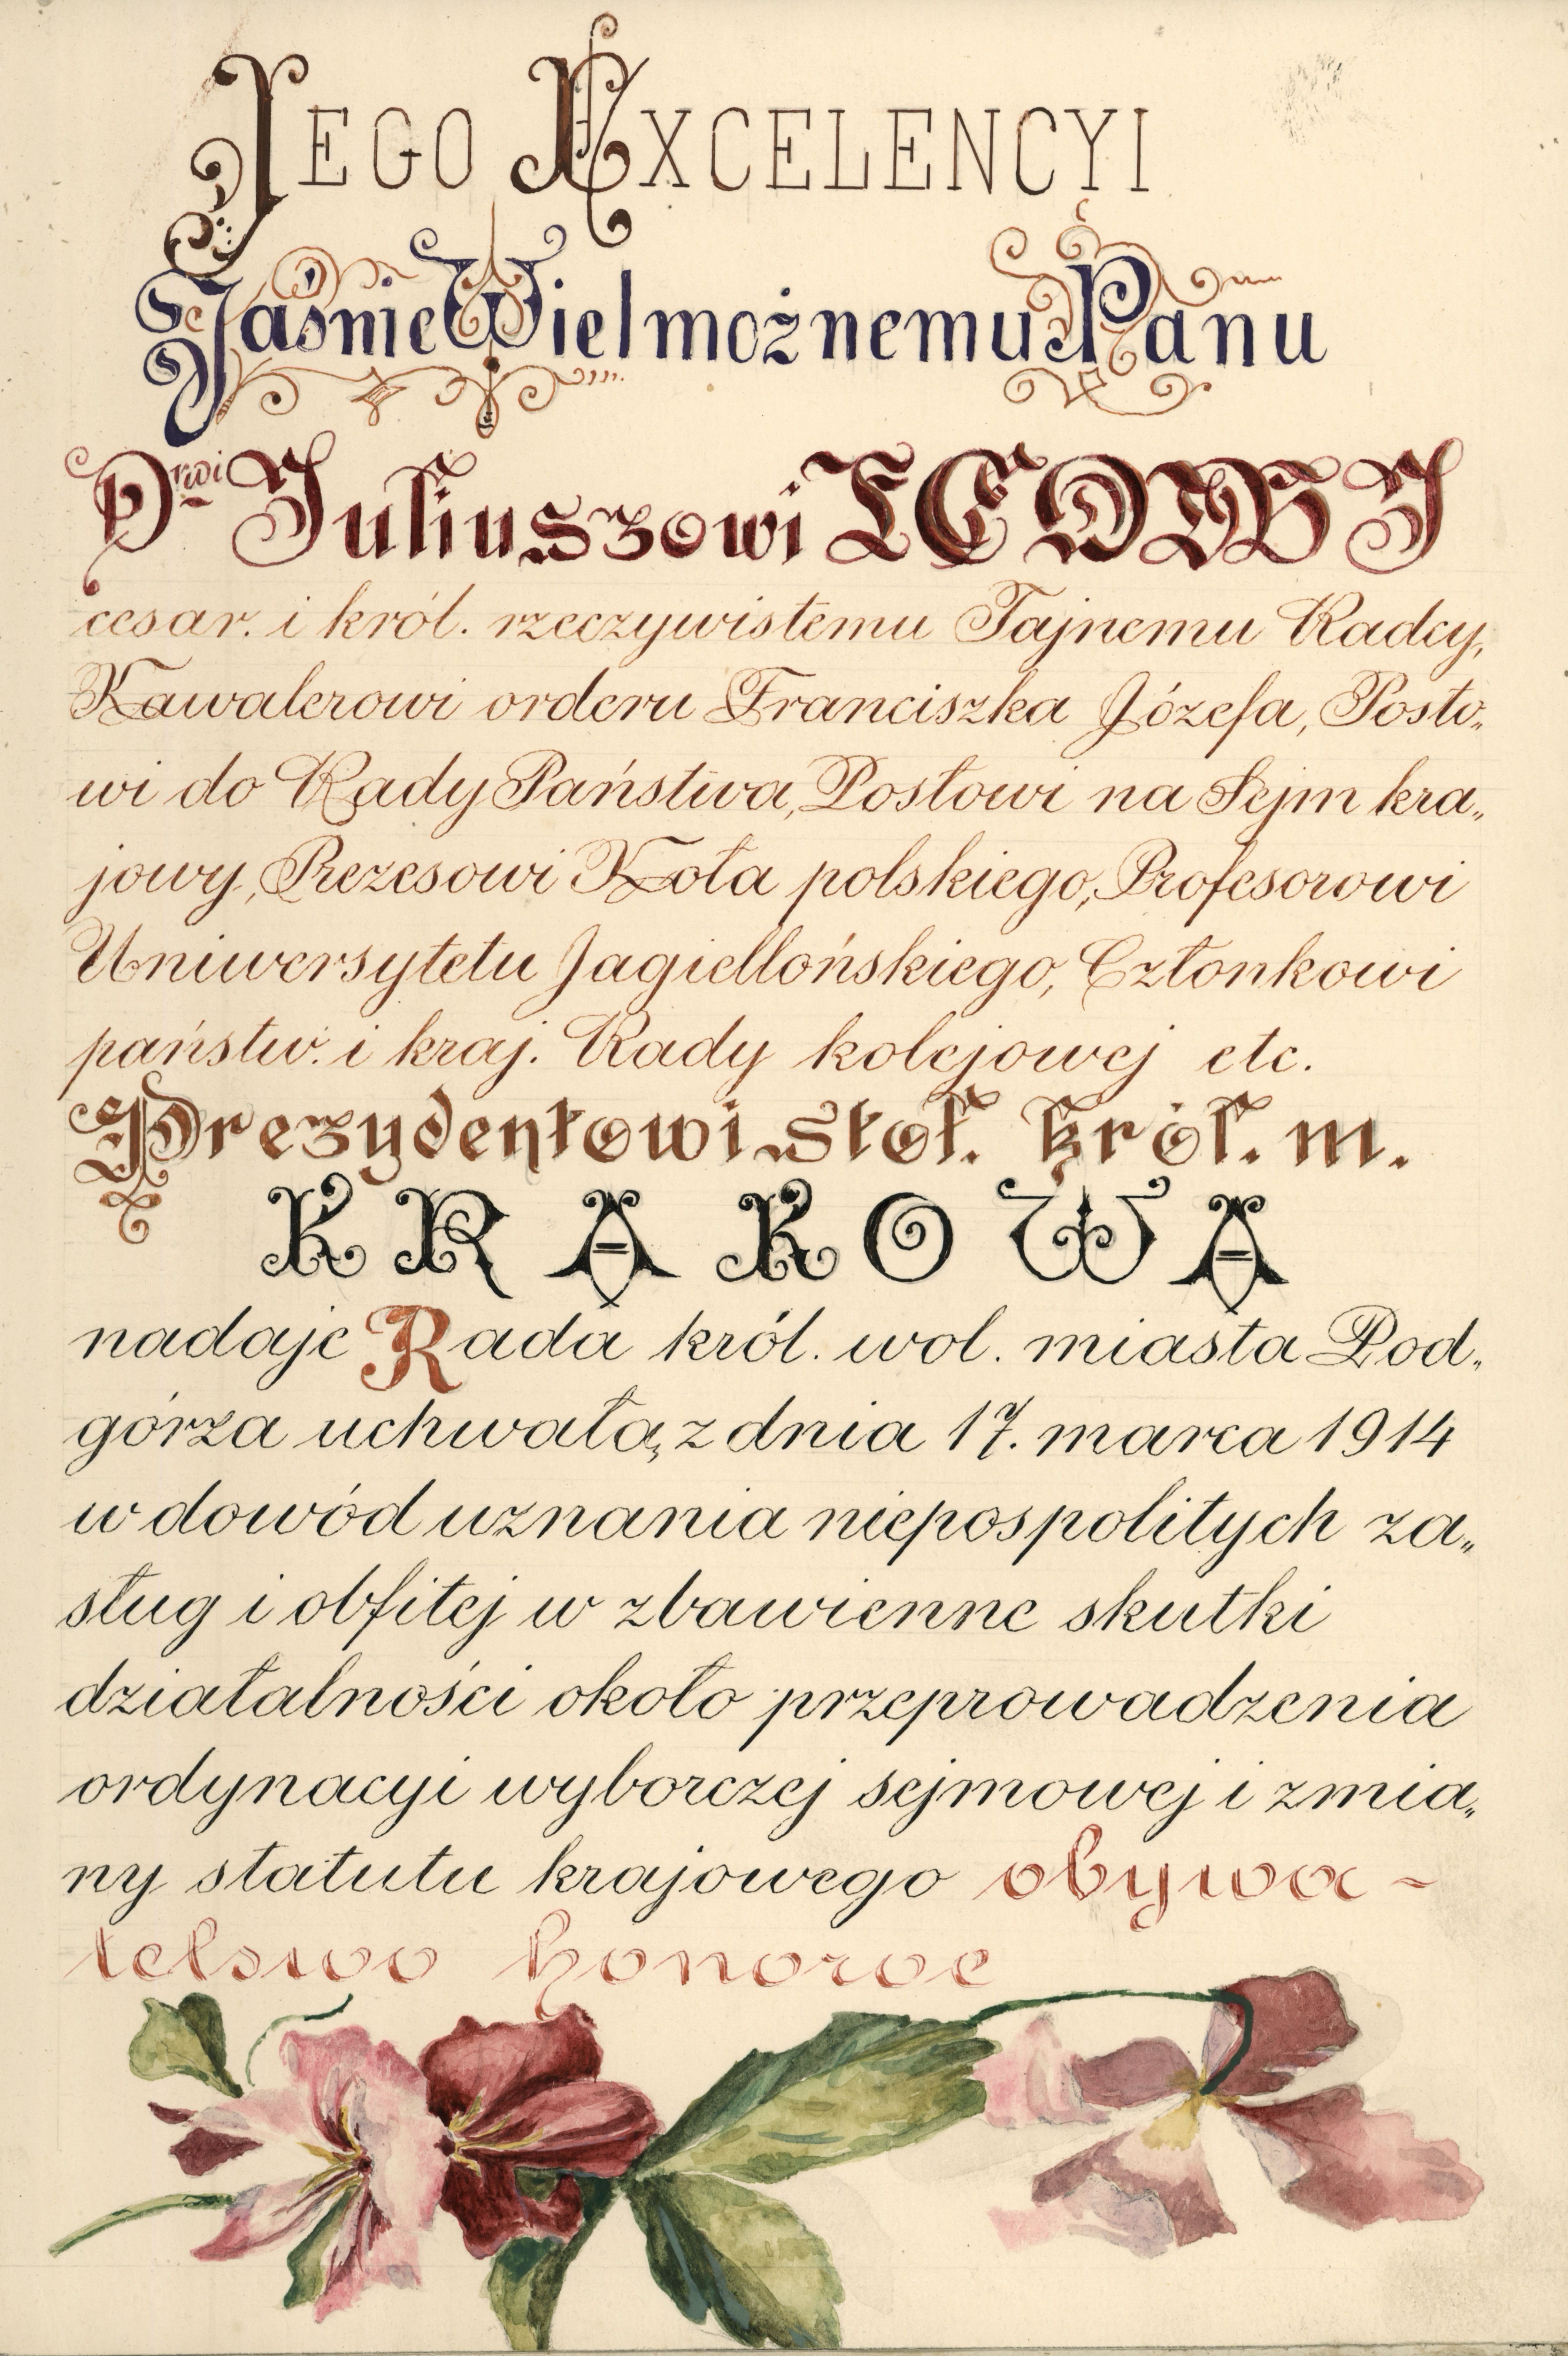 JEGO EXCELENCYI
JaśnieWielmożnemu Panu
Drwi Juliuszowi LEOWI
cesar. i król. rzeczywistemu Tajnemu Radcy,
Kawalerowi orderu Franciszka Józefa, Posło„
wi do Rady Państwa, Posłowi na Sejm kra„
jowy, Prezesowi Koła polskiego, Profesorowi
Uniwersytetu Jagiellońskiego, Członkowi
państw. i kraj. Rady kolejowej etc.
Prezydentowi stoł. król. m.
KRAKOWA
nadaje Rada król. wol. miasta Pod„
górza uchwałą z dnia 17. marca 1914
w dowód uznania niepospolitych za„
sług i obfitej w zbawienne skutki
działalności około przeprowadzenia
ordynacyi wyborczej sejmowej i zmia„
ny statutu krajowego obywa-
telswo honorowe